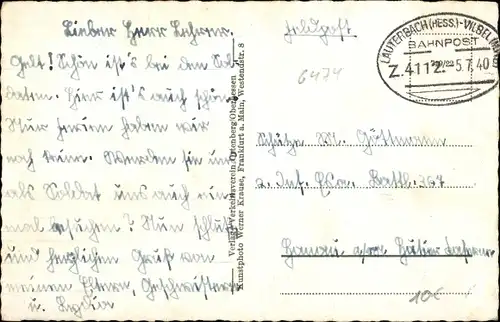 Lieber Herr Lehrer.
Gelt! Schön ist's bei den Sol-
daten. Hier ist's auch schön.
Nur Ferien haben wir
noch keine. Werden sie uns
als Soldat uns auch ein-
mal besuchen? Nun Schluß
und herzlichen Gruß von
meinen Eltern, Geschwistern
u. Lydia
Verlag: Verkehrsverein, Ortenberg/Oberhessen
Kunstphoto Werner Krause, Frankfurt a. Main, Westendstr. 8
Feldpost
6474
LAUTERBACH (HESS.)-VILBEL
BAHNPOST
Z.4112. 5.7.40
Schütze M. Güttmann
2. Inf. Batl. 367
Hanau
10€